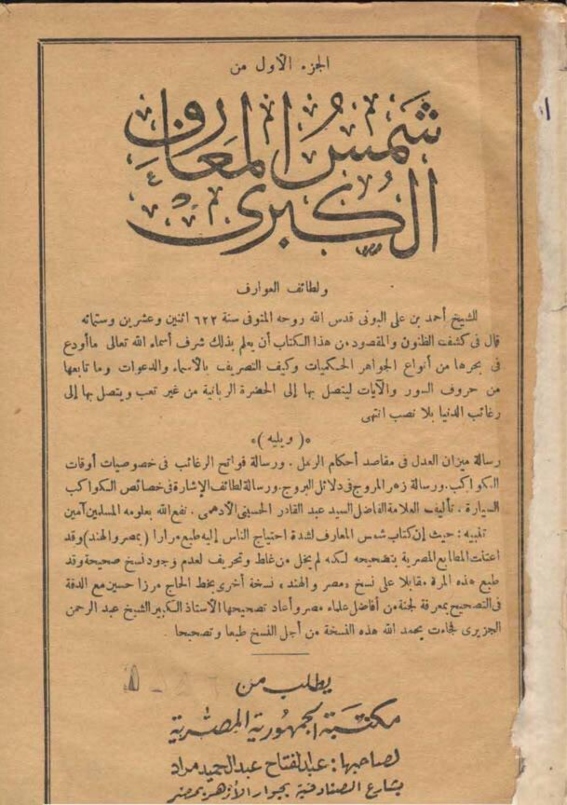 الجزء الأول من
شمس المعارف
الكبرى
ولطائف العوارف
للشيخ أحمد بن على البونى قدس الله روحه المتوفى سنة ٦٢٢ اثنين وعشرين وستمائه
قال فى كشف الظنون والمقصود من هذا الكتاب أن يعلم بذلك شرف أسماء الله تعالى ماأودع
فى بحرها من أنواع الجواهر الحكميات وكيف التصريف بالأسماء والدعوات وما تابعها
من حروف السور والآيات ليتصل بها إلى الحضرة الربانية من غير تعب ويتصل بها إلى
رغائب الدنيا بلا نصب انتهى
(ويليه)
رسالة ميزان العدل فى مقاصد أحكام الرمل . ورسالة فواتح الرغائب فى خصوصيات أوقات
الكواكب . ورسالة زهر المروج فى دلائل البروج . ورسالة لطائف الإشارة فى خصائص الكواكب
السيارة . تأليف العلامة الفاضل السيد عبد القادر الحسينى الأدهمى . نفع الله بعلومه المسلمين آمين
تنبيه : حيث إن كتاب شمس المعارف لشدة احتياج الناس إليه طبع مرارا (بمصر والهند) وقد
اعتنت المطابع المصرية بتصحيحه لكنه لم يخل من غلط وتحريف لعدم وجود نسخ صحيحة وقد
طبع هذه المرة مقابلا على نسخ ، مصر والهند ، نسخة أخرى بخط الحاج مرزا حسين مع الدقة
فى التصحيح بمعرفة لجنة من أفاضل علماء مصر وأعاد تصحيحها الأستاذ الكبير الشيخ عبد الرحمن
الجزيرى فجاءت بحمد الله هذه النسخة من أجل النسخ طبعا وتصحيحا
يطلب من
مكتبة الجمهورية المصرية
لصاحبها : عبد الفتاح عبد الحميد مراد
بشارع الصنادقية بجوار الأزهر بمصر